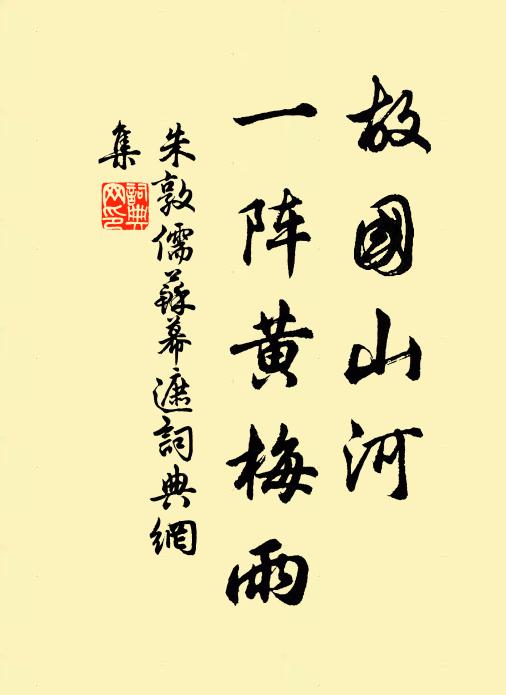 故國山河
一阵黄梅雨
朱敦儒蘇幕遮詞典網
集
詞典
网印